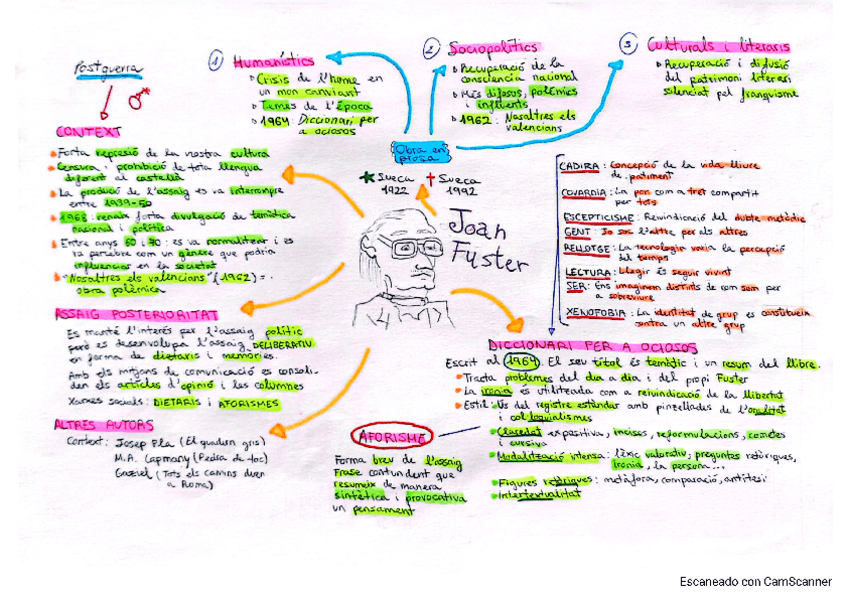 Postguerra
CONTEXT
Forta repressió de la nostra cultura
Censura i prohibició de tota llengua
diferent al castellà
La producció de l'assaig es va interrompre
entre 1939-50
forta divulgació de temàtica
nacional i política
Entre anys 60 i 70: es va normalitzar i es
va percebre com un gènere que podria
influenciar en la societat
"Nosaltres els valencians" (1962) =
obra polèmica
ASSAIG POSTERIORITAT
Es manté l'interés per l'assaig polític
però es desenvolupà l'assaig DELIBERATIU
en forma de dietaris i memòries.
Amb els mitjans de comunicació es consoli-
den els articles d'opinió i les columnes
Xarxes socials: DIETARIS i AFORISMES
ALTRES AUTORS
Context: Josep Pla (El quadern gris)
M.A. Capmany (Pedra de toc)
Gaziel (Tots els camins duen
a Roma)
1 Humanístics
Crisis de l'home en
un mon canviant
Temes de l'època
1964: Diccionari per
a ociosos
2 Sociopolítics
Recuperació de la
consciència nacional
Més difosos, polèmics
i influents
1962: Nosaltres els
valencians
3 Culturals i literaris
Recuperació i difusió
del patrimoni literari
silenciat pel franquisme
Obra en
prosa
Sueca
1922
Sueca
1992
Joan
Fuster
CADIRA: Concepció de la vida lliure
de patiment
COVARDIA: La por com a tret compartit
per tots
ESCEPTICISME: Reivindicació del dubte metòdic
GENT: Jo soc l'altre per als altres
RELLOTGE: La tecnologia varia la percepció
del temps
LECTURA: Llegir és seguir vivint
SER: Ens imaginem distints de com som per
a sobreviure
XENOFOBIA: La identitat de grup es constitueix
contra un altre grup
DICCIONARI PER A OCIOSOS
Escrit al 1964. El seu títol és temàtic i un resum del llibre.
Tracta problemes del dia a dia i del propi Fuster
La ironia és utilitzada com a reivindicació de la llibertat
Estil: Ús del registre estàndar amb pinzellades de l'oralitat
i col·loquialismes
Claredat expositiva, incisos, reformulacions, cometes
i cursiva
Modalització intensa: lèxic valoratiu, preguntes retòriques,
ironia, 1a persona...
Figures retòriques: metàfora, comparació, antítesi
Intertextualitat
AFORISME
Forma breu de l'assaig
Frase contundent que
resumeix de manera
sintètica i provocativa
un pensament
Escaneado con CamScanner